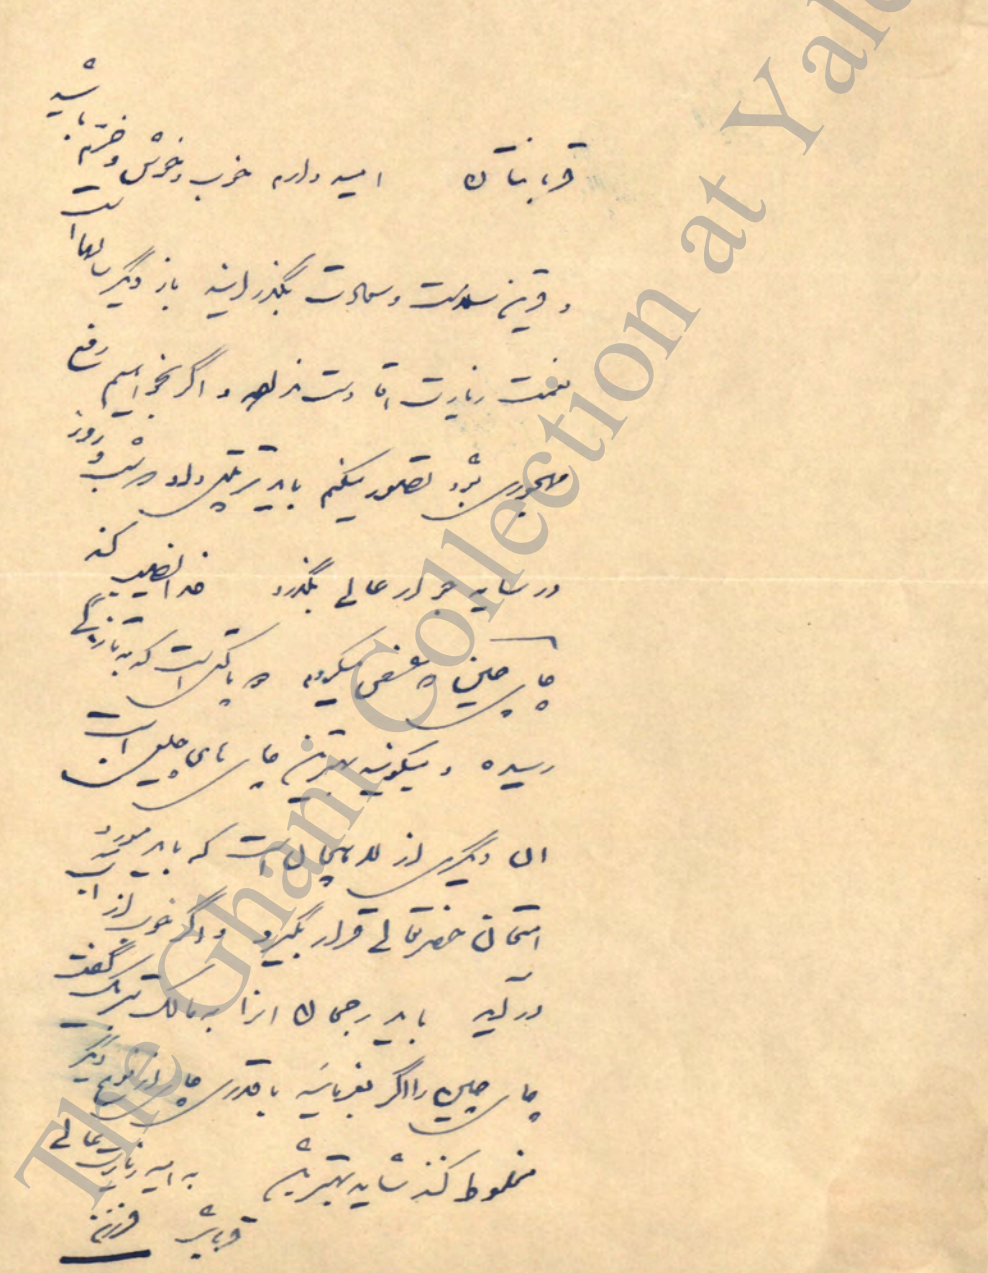 قربانتان امیدوارم خوب و خوش و خرم باشید
و قرین سلامت و سعادت بگذرانید باز دیگر سالها است
نعمت زیارت دست نداده و اگر بخواهیم رفع
مهجوری بشود تصور میکنم باید ترتیبی داد که شب و روز
در سایه جوار عالی بگذرد خدا نصیب کند
چای چین پاکتی است که به تازگی
رسیده و میگویند بهترین چای های چین است
آن دیگری از لاهیجان است که باید مورد
امتحان حضرتعالی قرار بگیرد و اگر خوب از آب
درآید باید رجحان آنرا به مالک تبریک گفت
چای چین را اگر بفرمائید با قدری چای از نوع دیگر
مخلوط کنند شاید بهتر باشد به امید زیارت عالی
قربانت فرزین
The Ghani Collection at Yale